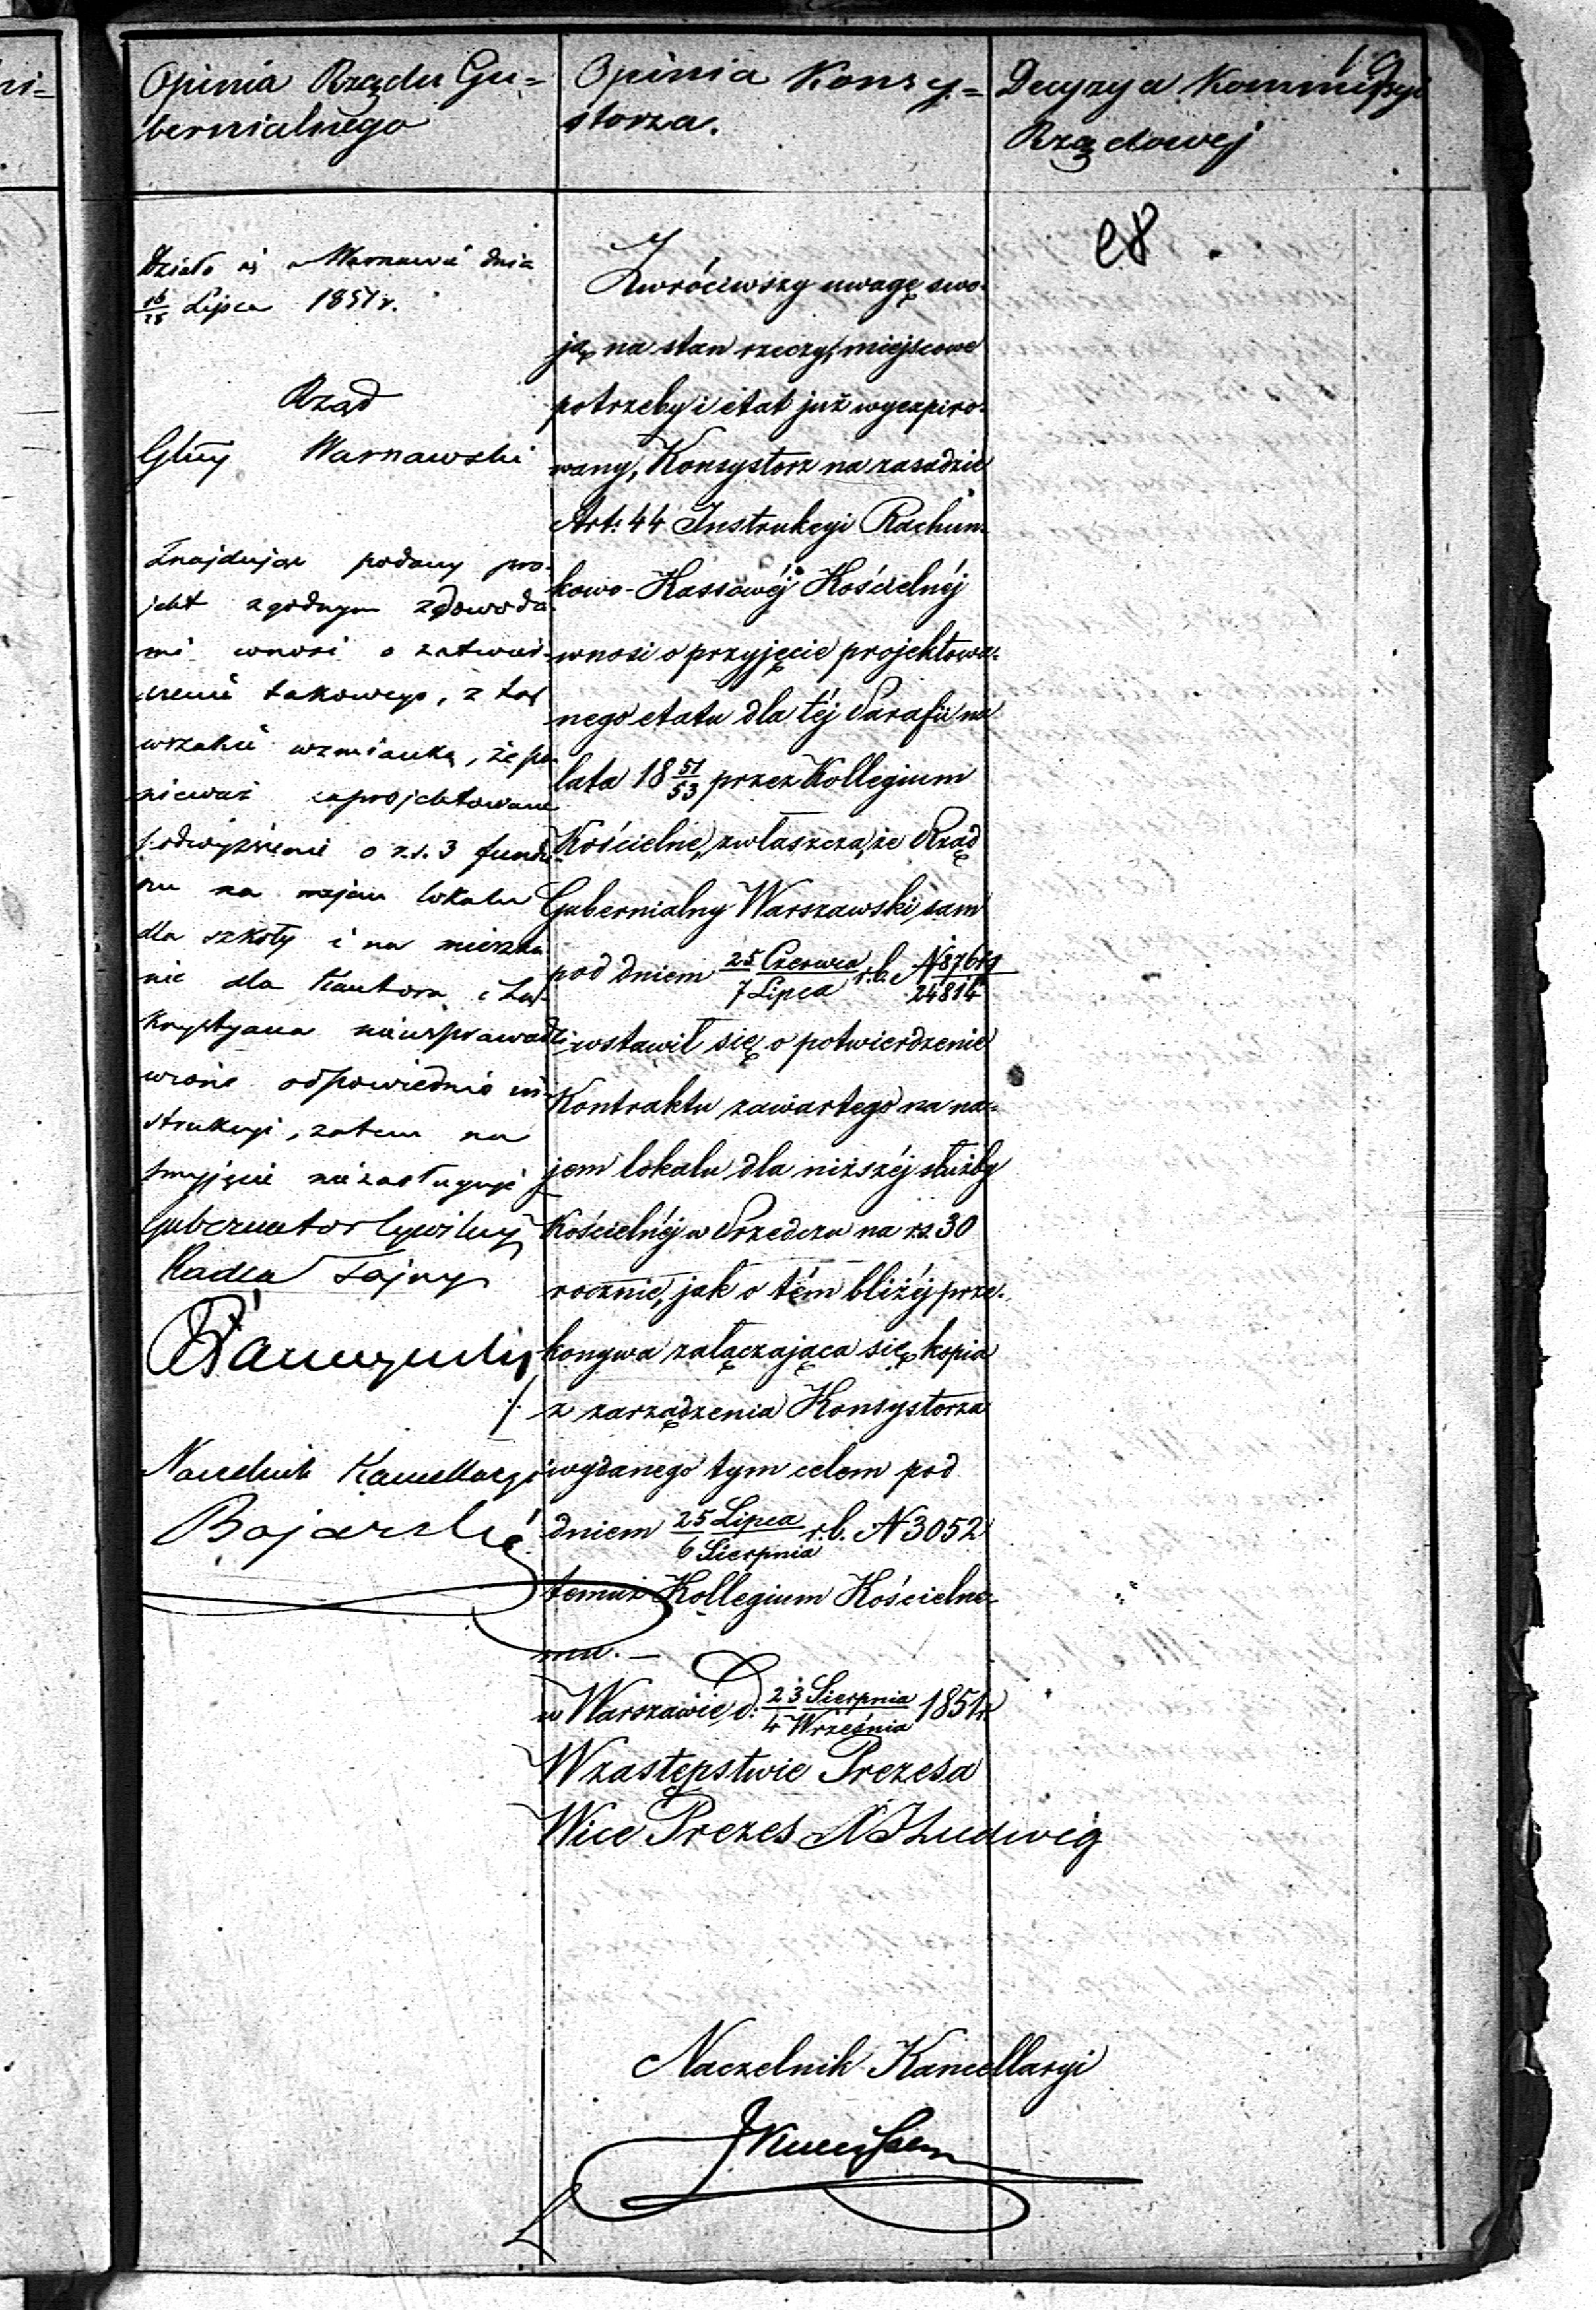 Opinia Rządu Gu=
bernialnego
Działo się w Warszawie dnia
16/28 Lipca 1851 r.
Rząd
Gbny Warszawski
Znajdując podany pro-
jekt zgodnym z dowoda-
mi wnosi o zatwier-
dzenie takowego, z tą
wszakże wzmianką, że po-
nieważ zaprojektowane
podwyższenie o rs. 3 fundu-
szu na najem lokalu
dla szkoły i na mieszka-
nie dla Kantora i Za-
krystyana nieusprawiedli-
wione odpowiednio in-
strukcyi, zatem na
przyjęcie niezasługuje
Gubernator Cywilny
Radca Tajny
Naczelnik Kancellaryi
Bojarski
Opinia Konsy=
storza.
Zwróciwszy uwagę swo-
ją na stan rzeczy, miejscowe
potrzeby i etat już wyexpiro-
wany, Konsystorz na zasadzie
Art: 44 Instrukcyi Rachun-
kowo-Kassowéj Kościelnéj
wnosi o przyjęcie projektowa-
nego etatu dla téj Parafii na
lata 18 51/53 przez Kollegium
Kościelne, zwłaszcza, że Rząd
Gubernialny Warszawski sam
pod dniem 25 Czerwca/7 Lipca r.b. N 24814
wstawił się o potwierdzenie
Kontraktu zawartego na na-
jem lokalu dla niższéj służby
Kościelnéj w Przedczu na rs. 30
rocznie, jak o tém bliżéj prze-
konywa załączająca się kopia
z zarządzenia Konsystorza
wydanego tym celem pod
dniem 25 Lipca/6 Sierpnia r.b. N 3052
temuż Kollegium Kościelne-
mu. —
w Warszawie d: 23 Sierpnia/4 Września 1851 r.
W zastępstwie Prezesa
Wice Prezes Ludwig
Naczelnik Kancellaryi
Decyzya Kommissyi
Rządowej
28